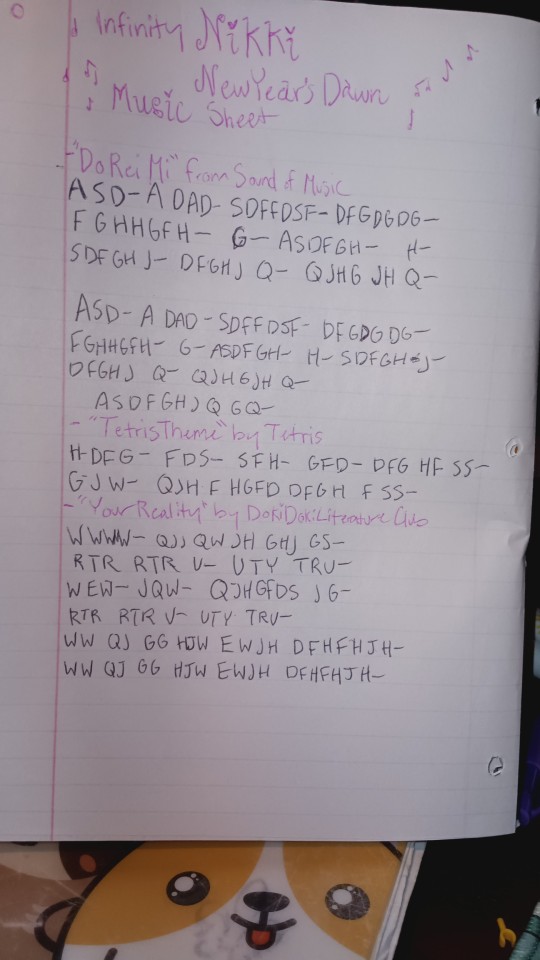 Infinity Nikki
New Year's Dawn
Music Sheet
- "Do Rei Mi" from Sound of Music
ASD- A DAD- SDFFDSF- DFGDGDG-
F GHHGFH- G- ASDFGH- H-
SDFGH J- DFGHJ Q- QJHG JH Q-
ASD- A DAD- SDFFDSF- DFGDG DG-
FGHHGFH- G- ASDFGH- H- SDFGH J-
DFGHJ Q- QJHGJH Q-
ASDFGHJQ GQ-
- "Tetris Theme" by Tetris
H-DFG- FDS- SFH- GFD- DFG HF SS-
GJW- QJH F HGFD DFGH F SS-
- "Your Reality" by Doki Doki Literature Club
WWWW- QJJ QW JH GHJ GS-
RTR RTR U- UTY TRU-
WEW- JQW- QJHGFDS JG-
RTR RTR U- UTY TRU-
WW QJ GG HJW EWJH DFHFHJH-
WW QJ GG HJW EWJH DFHFHJH-